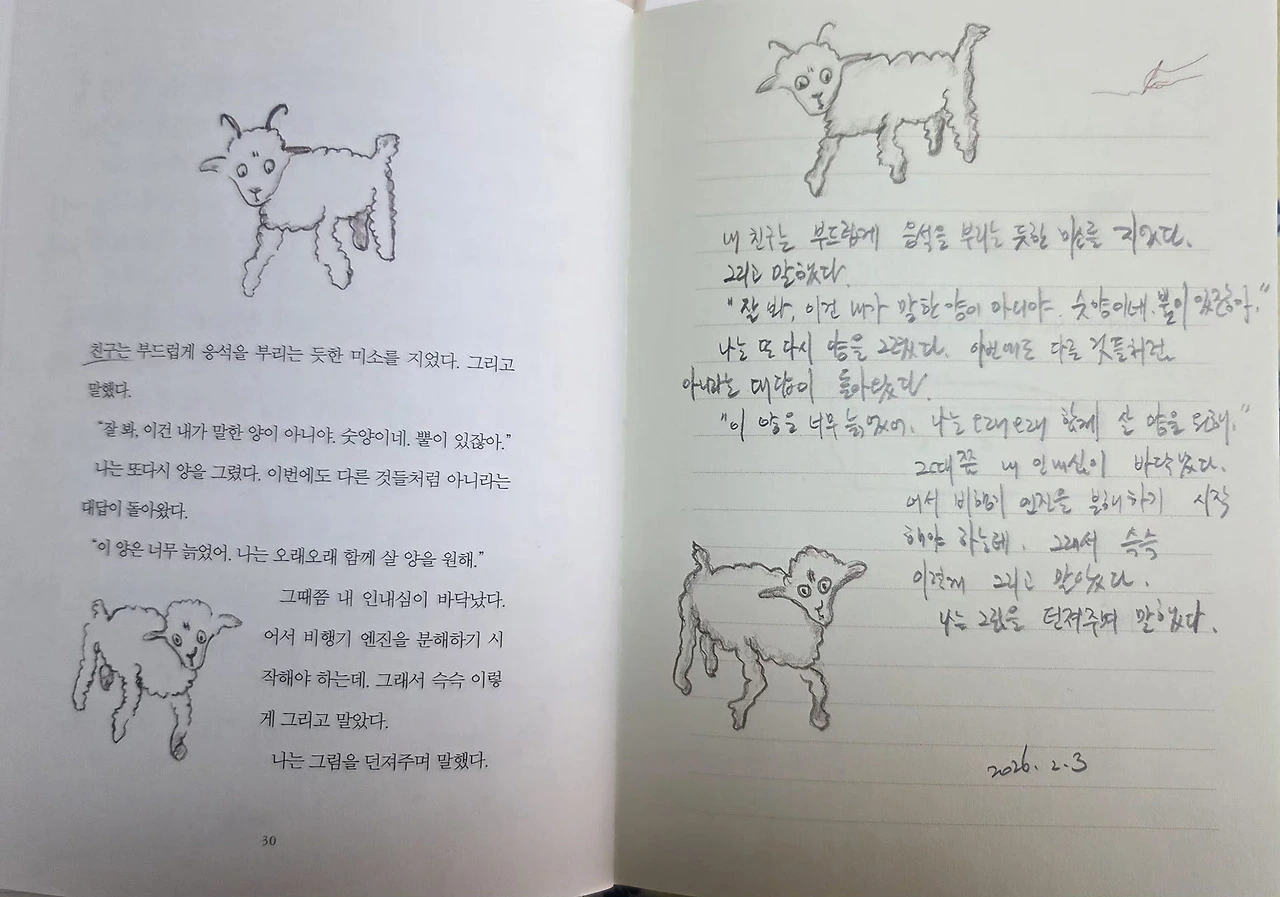 친구는 부드럽게 응석을 부리는 듯한 미소를 지었다. 그리고
말했다.
“잘 봐, 이건 내가 말한 양이 아니야. 숫양이네. 뿔이 있잖아.”
나는 또다시 양을 그렸다. 이번에도 다른 것들처럼 아니라는
대답이 돌아왔다.
“이 양은 너무 늙었어. 나는 오래오래 함께 살 양을 원해.”
그때쯤 내 인내심이 바닥났다.
어서 비행기 엔진을 분해하기 시
작해야 하는데. 그래서 슥슥 이렇
게 그리고 말았다.
나는 그림을 던져주며 말했다.
30
내 친구는 부드럽게 응석을 부리는 듯한 미소를 지었다.
그리고 말했다.
"잘 봐, 이건 내가 말한 양이 아니야. 숫양이네. 뿔이 있잖아."
나는 또 다시 양을 그렸다. 이번에도 다른 것들처럼
아니라는 대답이 돌아왔다.
"이 양은 너무 늙었어. 나는 오래오래 함께 살 양을 원해."
그때쯤 내 인내심이 바닥났다.
어서 비행기 엔진을 분해하기 시작
해야 하는데. 그래서 슥슥
이렇게 그리고 말았다.
나는 그림을 던져주며 말했다.
2026. 2. 3